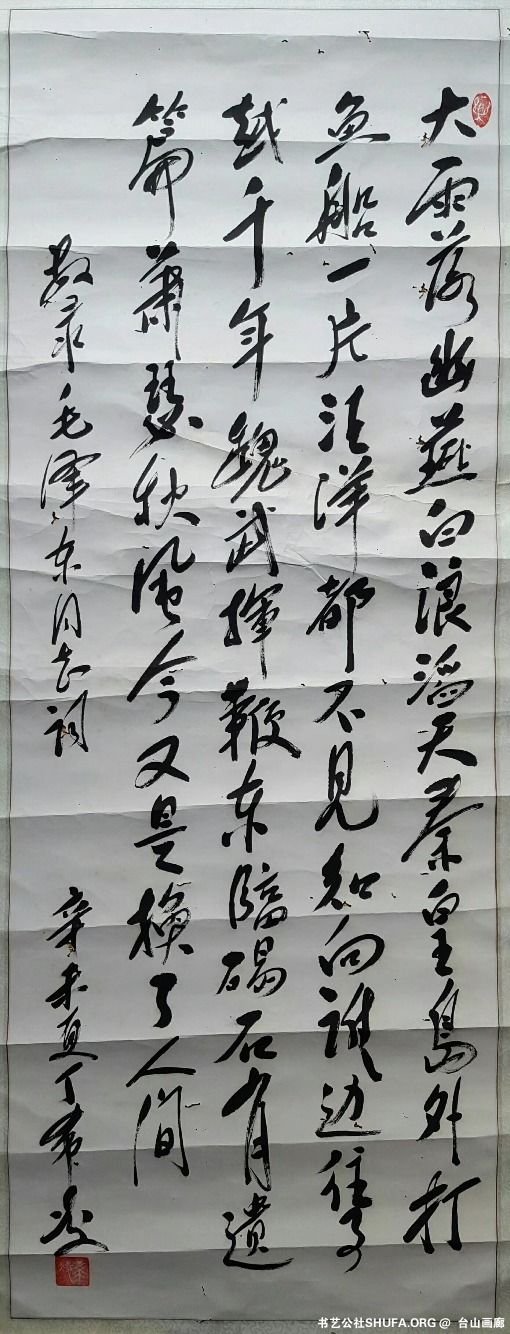 大雨落幽燕白浪滔天秦皇島外打
魚船一片汪洋都不見知向誰边往事
越千年魏武揮鞭东臨碣石有遺
篇蕭瑟秋風今又是換了人间
敬录毛泽东同志词
辛未夏丁希凌
书艺公社SHUFA.ORG @ 台山画廊